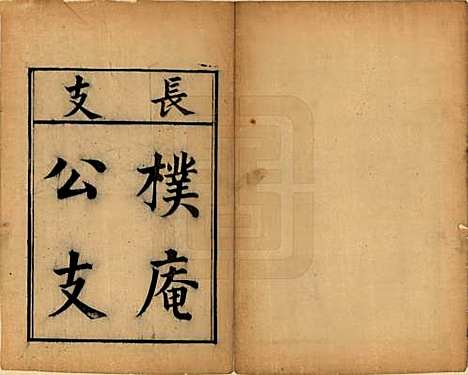 長支
樸庵
公支